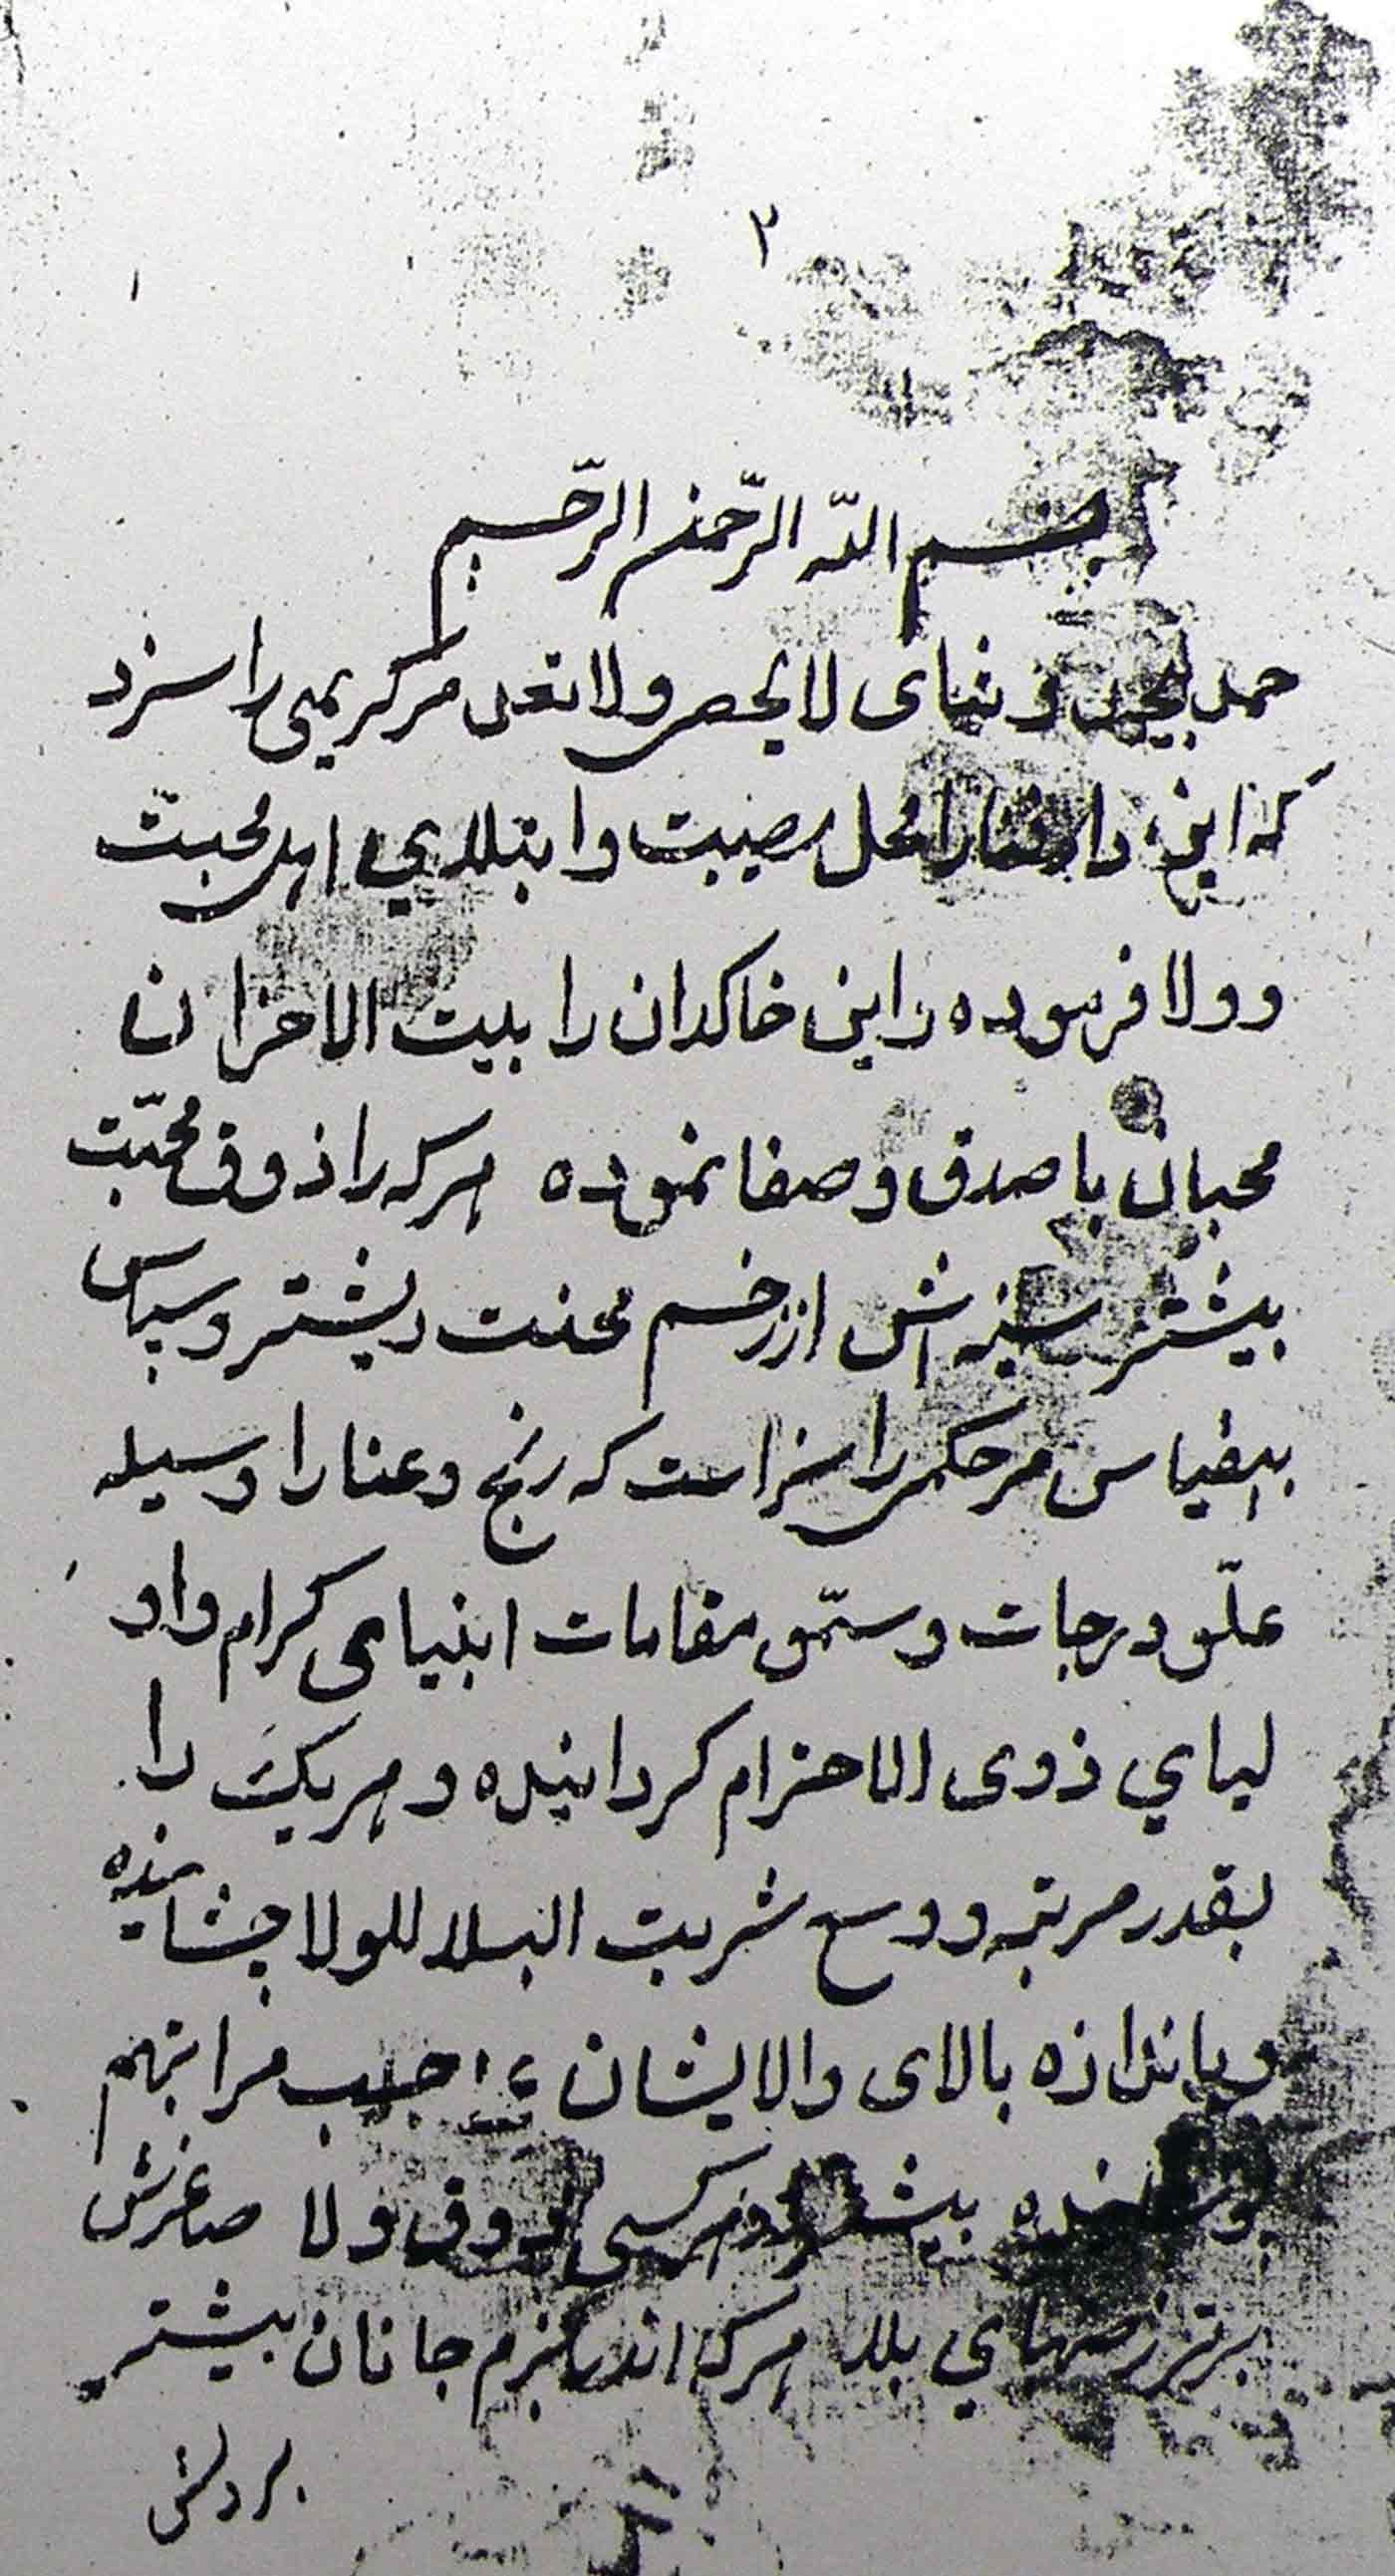 ٢
بسم اللّه الرّحمن الرّحیم
حمد بیحد و ثنای لا یحصی ولا تعد مرکریمی را سزد
که این دار فنا را محل مصیبت و ابتلاي اهل محبتّ
و ولا فرموده و این خاکدان را بیت الاحزان
محبان با صدق و صفا نموده هرکه را ذوق محبّت
بیشتر سینه اش از زخم محنت ریشتر و سپاس
بیقیاس مرحکمی را سزاست که رنج و عنا را وسیله
علّو درجات و سمّو مقامات انبیای کرام و او
لیاي ذوی الاحترام کردانیده و هریکَ را
بقدر مرتبه و وسع شربت البلاء للولا چشانیده
و باندازه بالای والایشان جلب مراتبهم
پوشانیده بیشتر و هرکسی ذوق ولا صاغرش
برتر زصهباي بلا هرکه اندر بزم جانان بیشتر
بر دلش